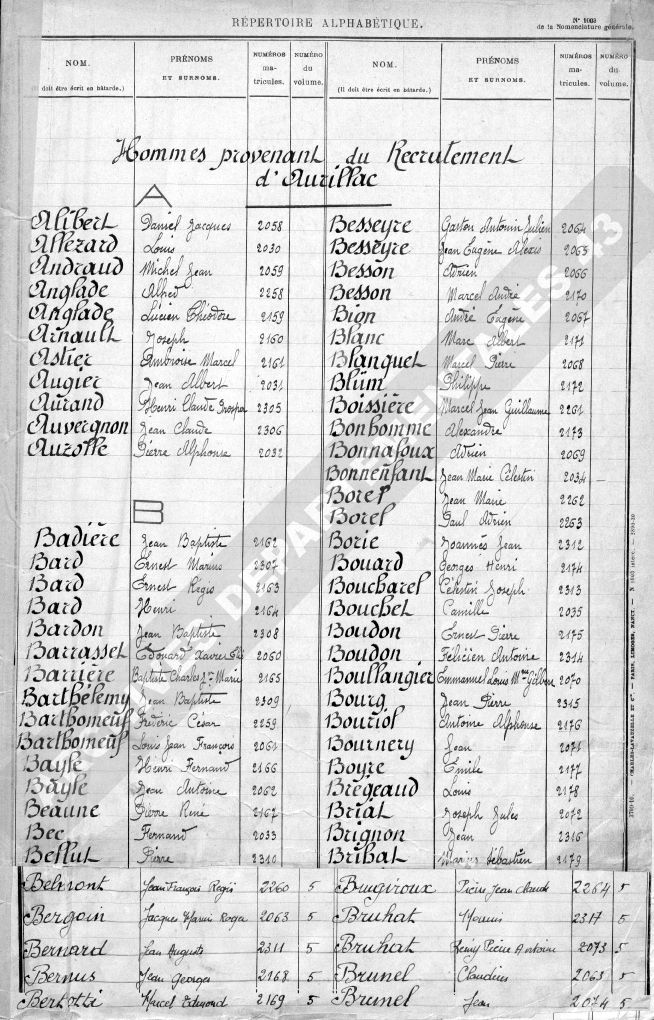 RÉPERTOIRE ALPHABÉTIQUE.
N° 1003
de la Nomenclature générale.
NOM.
(Il doit être écrit en bâtarde.)
PRÉNOMS
ET SURNOMS.
NUMÉROS
ma-
tricules.
NUMÉRO
du
volume.
NOM.
(Il doit être écrit en bâtarde.)
PRÉNOMS
ET SURNOMS.
NUMÉROS
ma-
tricules.
NUMÉRO
du
volume.
Hommes provenant du Recrutement
d'Aurillac
A
Alibert Daniel Jacques 2058
Allezard Louis 2030
Andraud Michel Jean 2059
Anglade Alfred 2258
Anglade Lucien Théodore 2159
Arnault Joseph 2160
Astier Ambroise Marcel 2161
Augier Jean Albert 2031
Aurand Henri Claude Prosper 2305
Auvergnon Jean Claude 2306
Auzolle Pierre Alphonse 2032
B
Badière Jean Baptiste 2162
Bard Ernest Marius 2307
Bard Ernest Régis 2163
Bard Henri 2164
Bardon Jean Baptiste 2308
Barrasset Edouard Xavier 2060
Barrière Baptiste Charles Marie 2165
Barthélemy Jean Baptiste 2309
Barthomeuf Frédéric César 2259
Barthomeuf Louis Jean François 2061
Bayle Henri Fernand 2166
Bayle Jean Antoine 2062
Beaune Pierre René 2167
Bec Fernand 2033
Bellut Pierre 2310
Belmont Jean François Régis 2260 5
Bergoin Jacques Marius Roger 2063 5
Bernard Jean Auguste 2311 5
Bernus Jean Georges 2168 5
Bertotti Marcel Edmond 2169 5
Besseyre Gaston Antonin Julien 2064
Besseyre Jean Eugène Alexis 2065
Besson Adrien 2066
Besson Marcel André 2170
Bion André Eugène 2067
Blanc Marc Albert 2171
Blanquet Marcel Pierre 2068
Blüm Philippe 2172
Boissière Marcel Jean Guillaume 2261
Bonhomme Alexandre 2173
Bonnafoux Adrien 2069
Bonnenfant Jean Marie Célestin 2034
Borel Jean Marie 2262
Borel Paul Adrien 2263
Borie Joannès Jean 2312
Bouard Georges Henri 2174
Boucharel Célestin Joseph 2313
Bouchet Camille 2035
Boudon Ernest Pierre 2175
Boudon Félicien Antoine 2314
Boullangier Emmanuel Louis 2070
Bourg Jean Pierre 2315
Bouriol Antoine Alphonse 2176
Bournery Jean 2071
Boyre Emile 2177
Brégeaud Louis 2178
Briat Joseph Jules 2072
Brignon Jean 2316
Brihat Marius Sébastien 2179
Brugiroux Pierre Jean Claude 2264 5
Bruhat Marius 2317 5
Bruhat Rémy Pierre Antoine 2073 5
Brunel Claudius 2065 5
Brunel Jean 2074 5
ARCHIVES DEPARTEMENTALES 43
CHARLES-LAVAUZELLE ET Cie. — PARIS, LIMOGES, NANCY